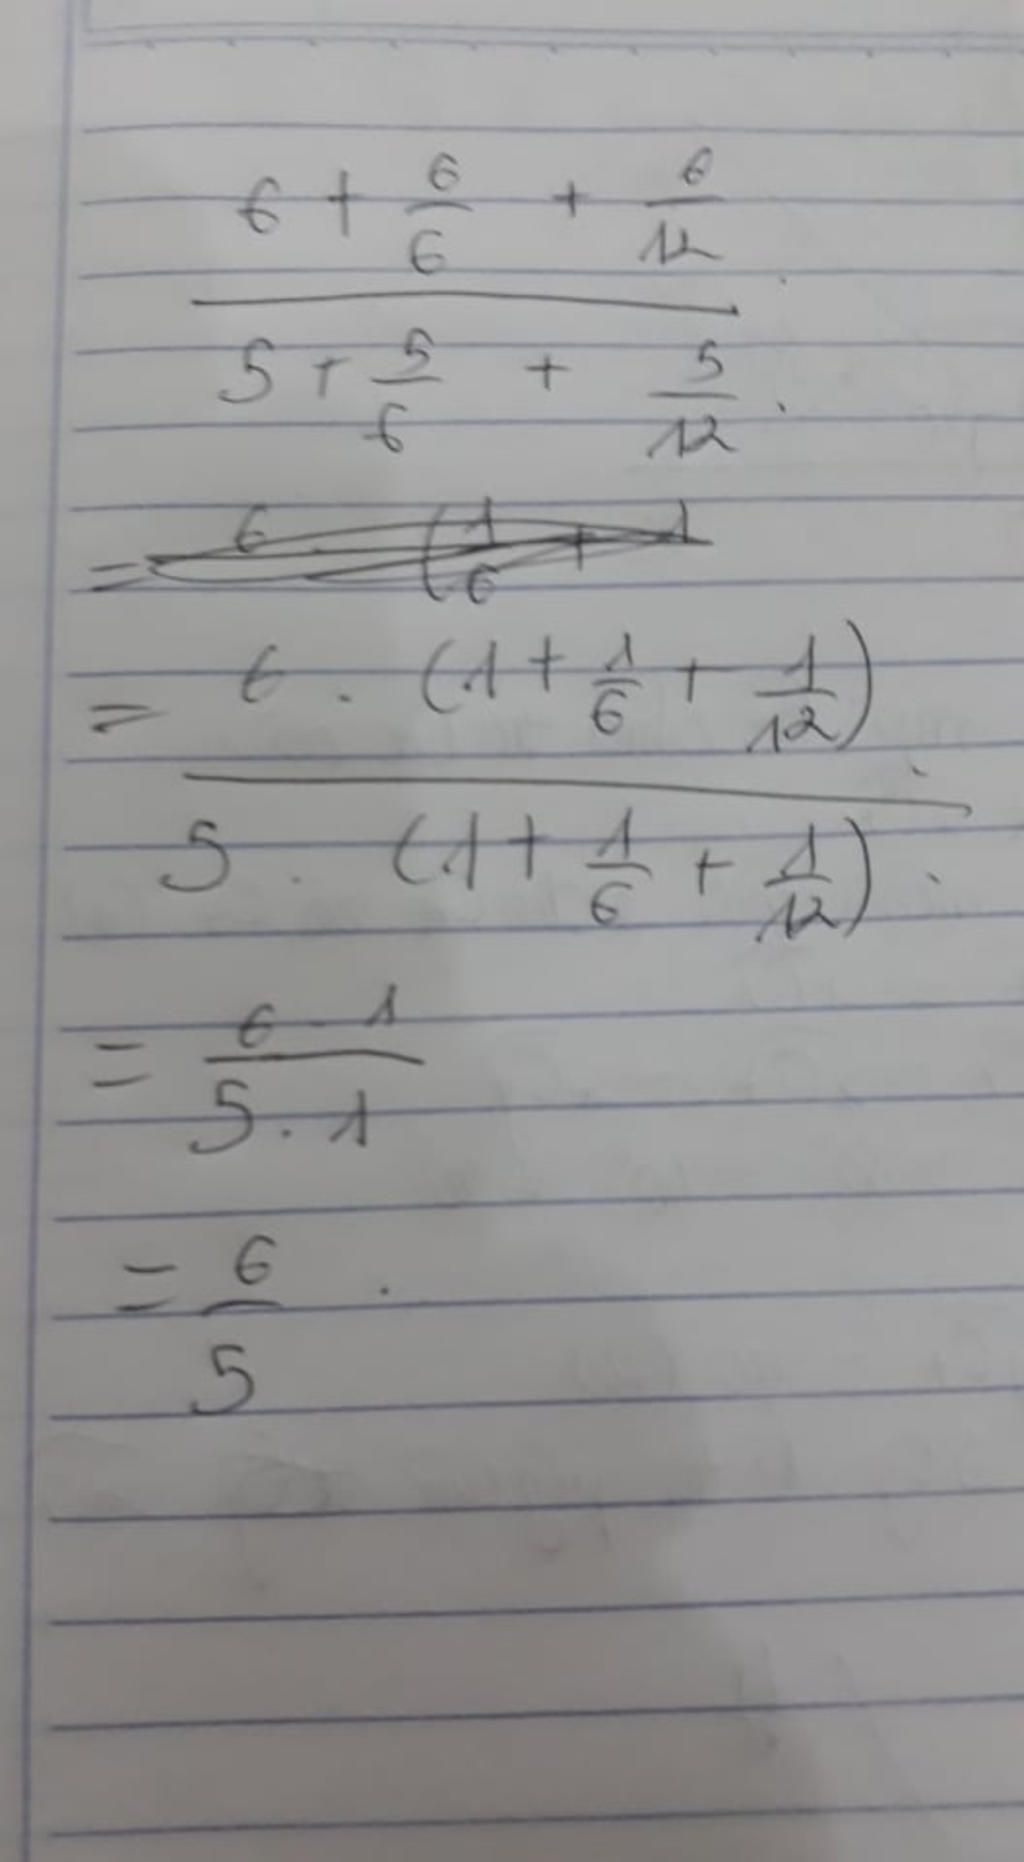 6 + 6/6 + 6/12
5 + 5/6 + 5/12
= 6 (1/6 + 1
= 6 . (1 + 1/6 + 1/12)
5 . (1 + 1/6 + 1/12)
= 6 . 1
5 . 1
= 6
5